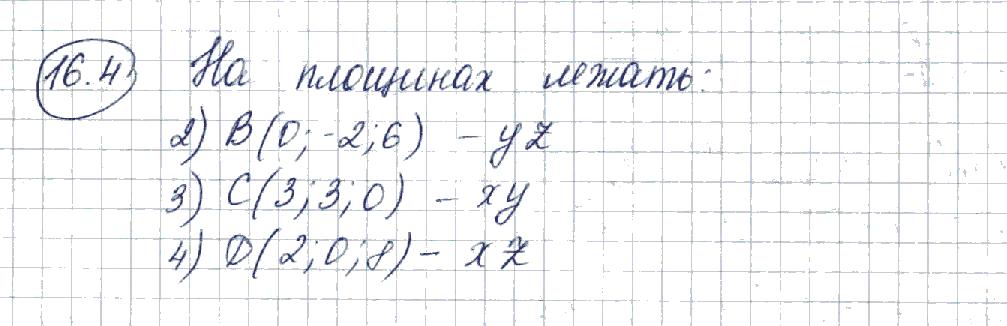 16.4 На площинах лежать:
2) B(0; -2; 6) - yz
3) C(3; 3; 0) - xy
4) D(2; 0; 8) - xz